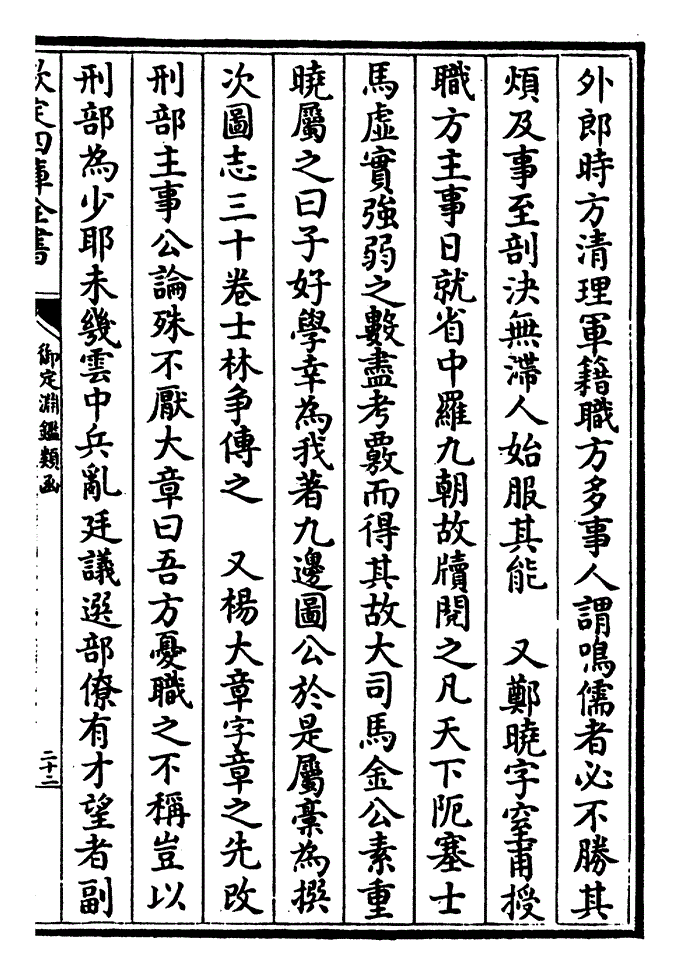 外郎時方清理軍籍職方多事人謂鳴儒者必不勝其
煩及事至剖決無滯人始服其能　又鄭曉字窒甫授
職方主事日就省中羅九朝故牘閱之凡天下阨塞士
馬虛實強弱之數盡考覈而得其故大司馬金公素重
曉屬之曰子好學幸為我著九邊圖公於是屬稾為撰
次圖志三十卷士林爭傳之　又楊大章字章之先改
刑部主事公論殊不厭大章曰吾方憂職之不稱豈以
刑部為少耶未幾雲中兵亂廷議選部僚有才望者副
欽定四庫全書
御定淵鑑類函
二十二